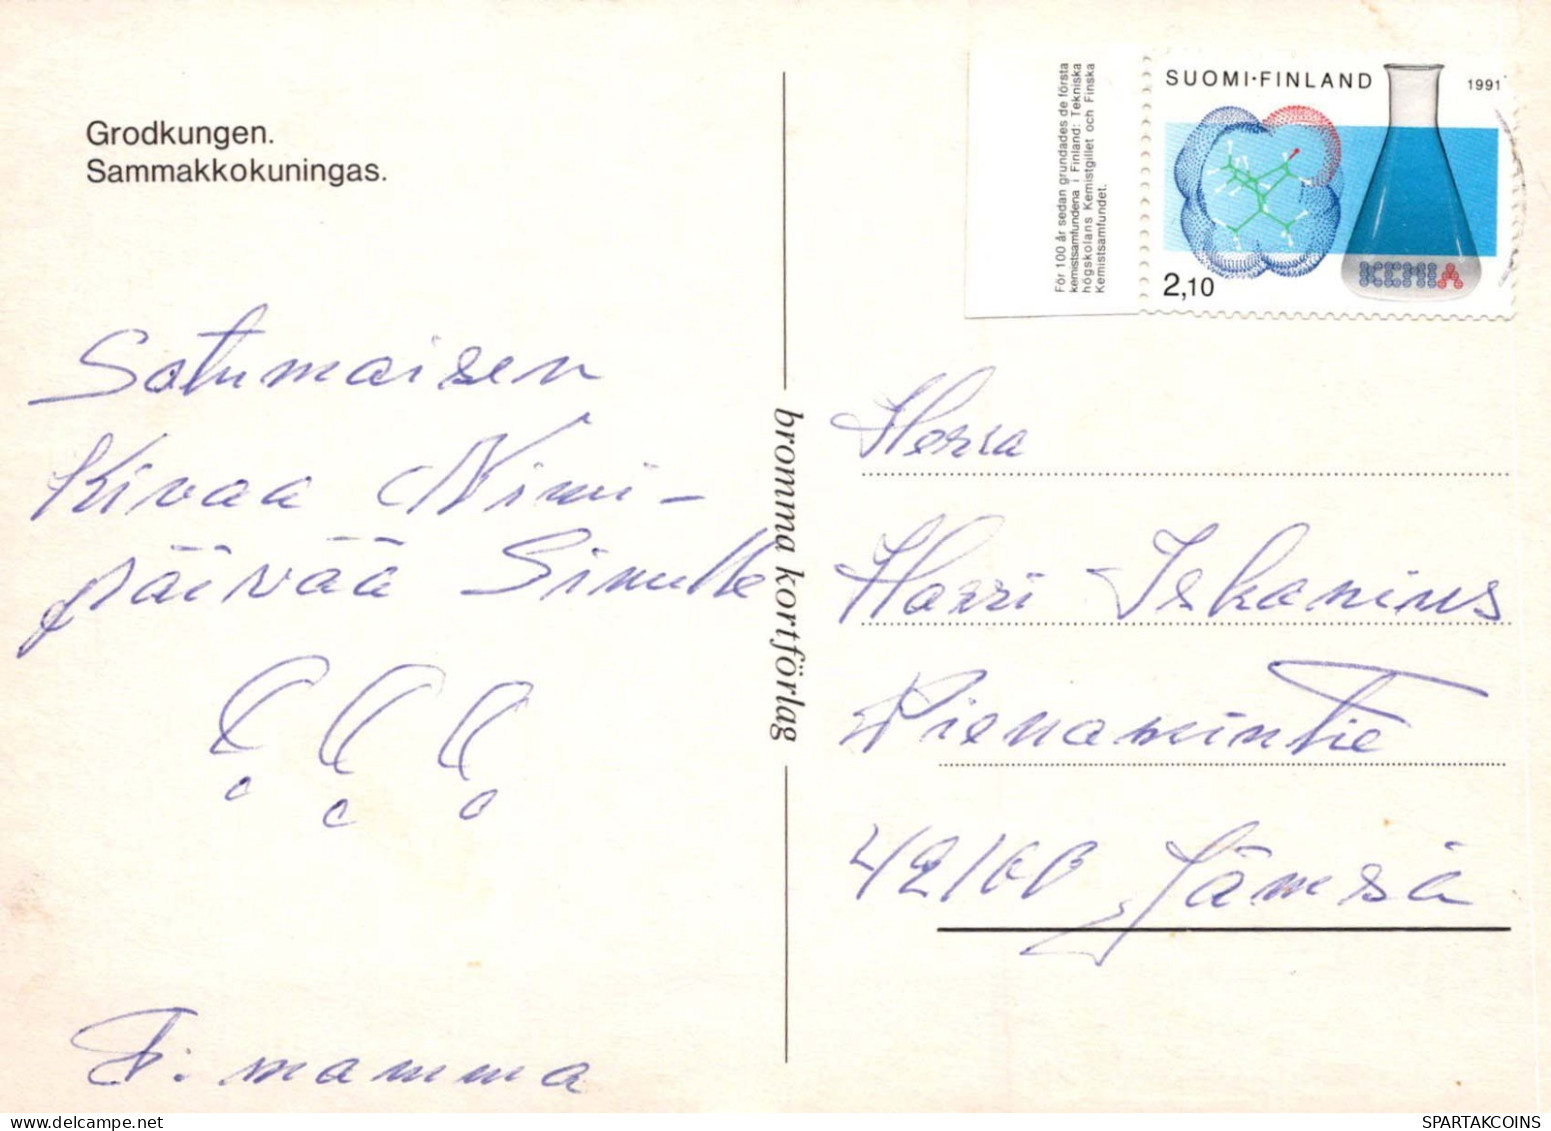 Grodkungen.
Sammakkokuningas.
Satumaisen
Kivaa Nimi-
päivää Sinulle
!!!
T: mamma
bromma kortförlag
För 100 år sedan grundades de första
kemistsamfundena i Finland: Tekniska
högskolans Kemistgillet och Finska
Kemistsamfundet.
SUOMI-FINLAND
1991
KEMIA
2,10
Herra
Harri Iskanius
42100 Jämsä
SPARTAKCOINS